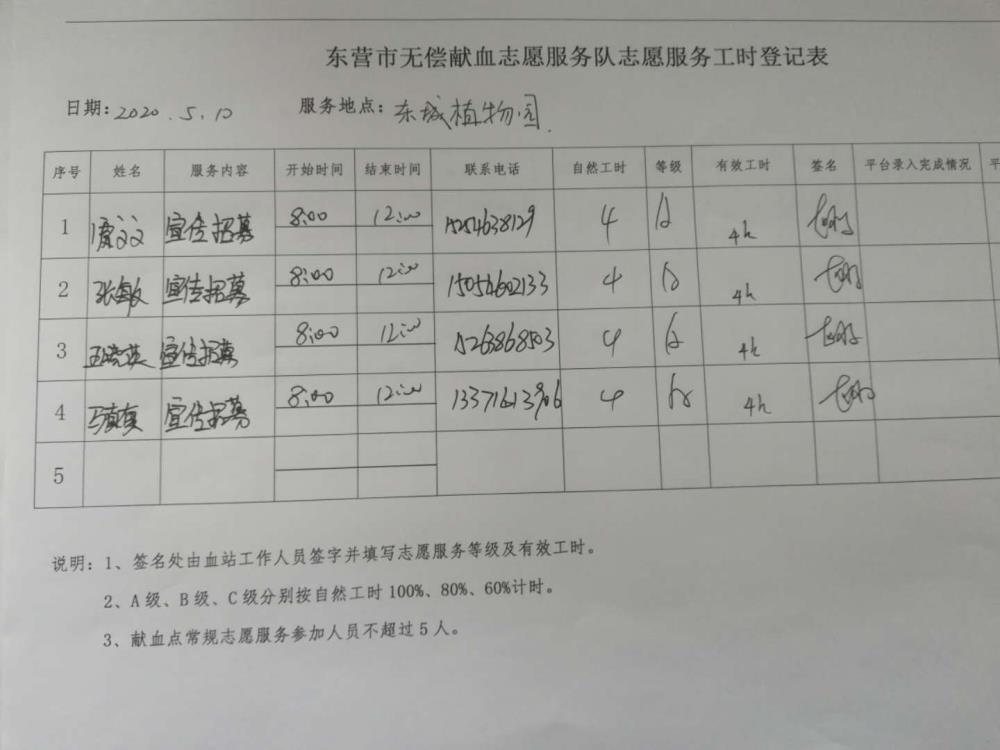 东营市无偿献血志愿服务队志愿服务工时登记表
日期: 2020.5.10 服务地点: 东城植物园.
序号 姓名 服务内容 开始时间 结束时间 联系电话 自然工时 等级 有效工时 签名 平台录入完成情况 平
1 宣传招募 8:00 12:00 15254638129 4 A 4h
2 张敏 宣传招募 8:00 12:00 4 A 4h
3 宣传招募 8:00 12:00 15263868503 4 A 4h
4 宣传招募 8:00 12:00 13371613906 4 A 4h
5
说明: 1、签名处由血站工作人员签字并填写志愿服务等级及有效工时。
2、A 级、B 级、C 级分别按自然工时 100%、80%、60%计时。
3、献血点常规志愿服务参加人员不超过 5 人。